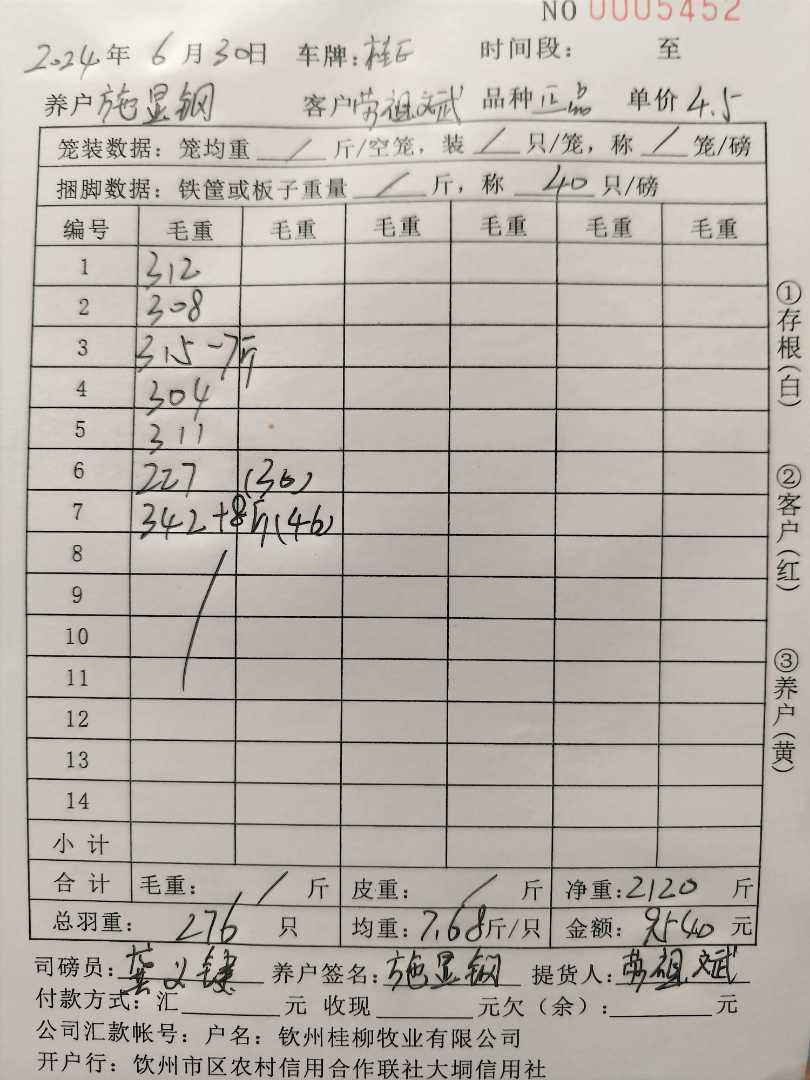 NO 0005452
2024年 6月30日 车牌: 时间段: 至
养户 施显钢 客户 劳祖斌 品种 正品 单价 4.5
笼装数据: 笼均重 / 斤/空笼, 装 / 只/笼, 称 / 笼/磅
捆脚数据: 铁筐或板子重量 / 斤, 称 40 只/磅
编号 毛重 毛重 毛重 毛重 毛重 毛重
1 312
2 308
3 315-7斤
4 304
5 311
6 227 (36)
7 342+8斤(46)
8
9
10
11
12
13
14
小计
合计 毛重: / 斤 皮重: / 斤 净重: 2120 斤
总羽重: 276 只 均重: 7.68斤/只 金额: 9540 元
司磅员: 养户签名: 施显钢 提货人: 劳祖斌
付款方式: 汇 元 收现 元欠(余): 元
公司汇款帐号: 户名: 钦州桂柳牧业有限公司
开户行: 饮州市区农村信用合作联社大垌信用社
①存根(白)
②客户(红)
③养户(黄)